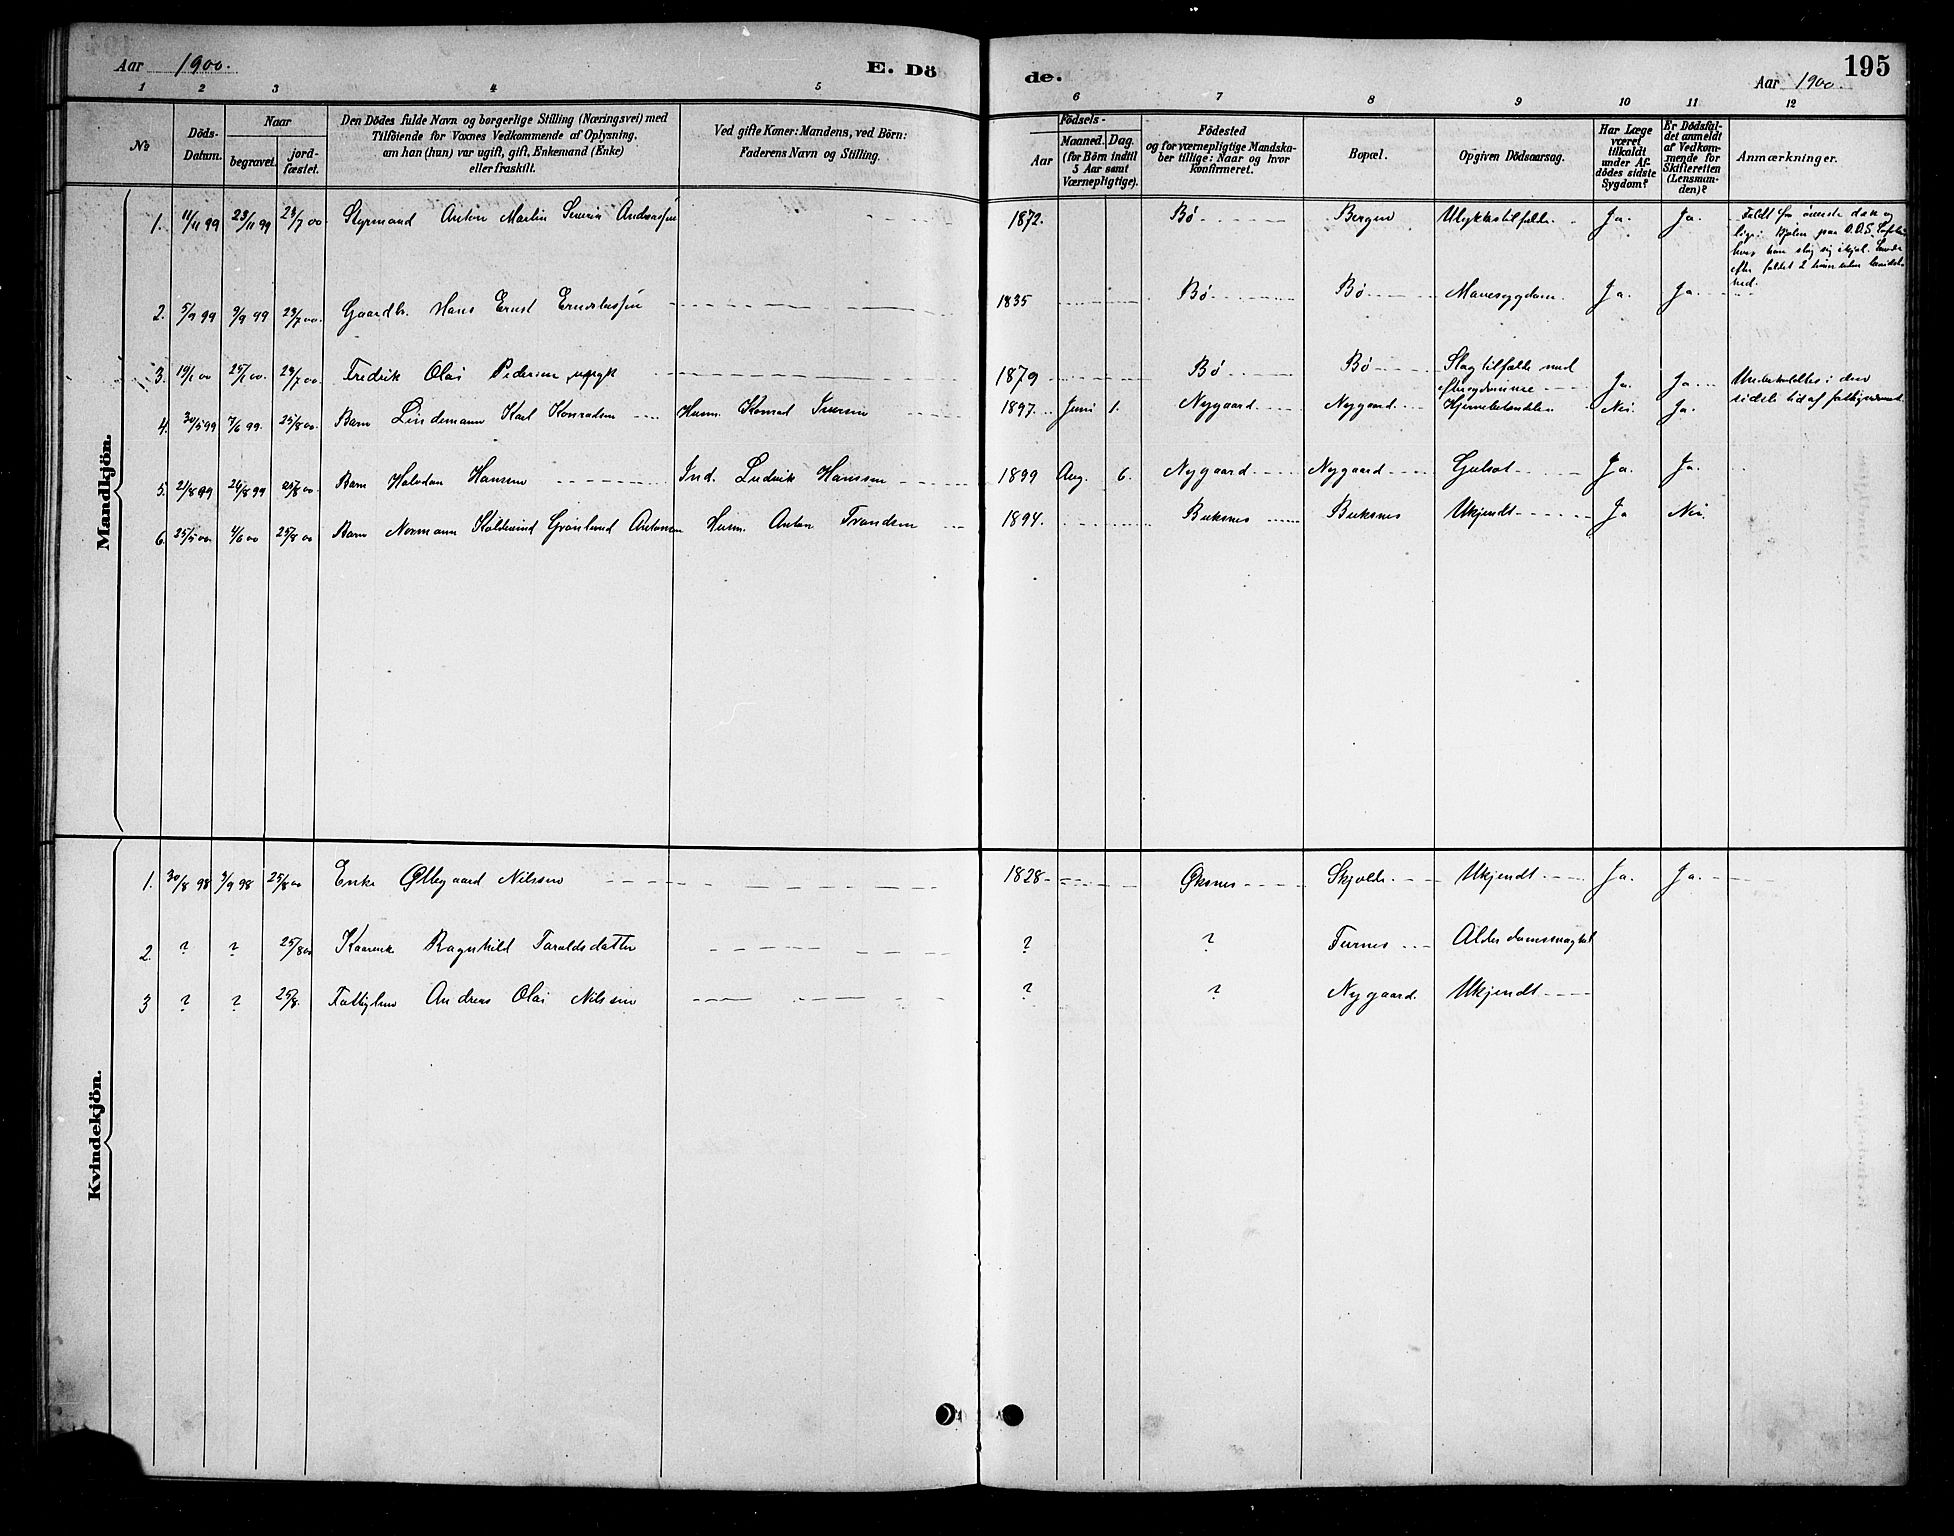 Aar 1900.
E. Dö
de.
Aar 1900.
195
1 2 3 4 5 6 7 8 9 10 11 12
No
Döds-
Datum.
Naar
begravet.
jord-
fæstet.
Den Dödes fulde Navn og borgerlige Stilling (Næringsvei) med
Tilföiende for Voxnes Vedkommende af Oplysning,
om han (hun) var ugift, gift, Enkemand (Enke)
eller fraskilt.
Ved gifte Koner: Mandens, ved Börn:
Faderens Navn og Stilling.
Födsels-
Aar
Maaned. Dag.
(for Börn indtil
5 Aar samt
Værnepligtige).
Födested
og for værnepligtige Mandska-
ber tillige: Naar og hvor
konfirmeret.
Bopæl.
Opgiven Dödsaarsag.
Har Læge
været
tilkaldt
under Af-
dödes sidste
Sygdom?
Er Dödsfal-
det anmeldt
af Vedkom-
mende for
Skifteretten
(Lensman-
den)?
Anmærkninger.
Mandkjön.
1. 11/11 99 23/11 99 29/7 00 Styrmand Anton Martin Severin Andreassen 1872. Bø Bergen Ulykkestilfælde Ja. Ja. Faldt fra øverste dæk og
hvor han slog sig ihjel. Levede
efter faldet 2 timer uden bevidst-
hed.
2. 5/9 99 9/9 99 29/7 00. Gaardbr. Hans Ernst Ernstessen 1835 Bø Bø Mavesygdom. Ja. Ja.
3. 19/1 00 25/1 00. 29/7 00. Fredrik Olai Pedersen, 1879 Bø Bø Slagtilfælde med
Ja. Ja Underholdtes i den
sidste tid af
4. 30/5 99 7/6 99. 25/8 00. Barn Lindemann Karl Konradsen Husm. Konrad Iversen 1897. Juni 1. Nygaard Nygaard Hjernebetændelse Nei. Ja.
5. 21/8 99 26/8 99 25/8 00. Barn Halvdan Hansen Ind. Ludvik Hanssen 1899 Aug. 6. Nygaard Nygaard Gulsot Ja. Ja.
6. 25/5 00 4/6 00 25/8 00 Barn Normann Grønlund Antonsen Husm. Anton Trondsen 1894. Buksnes Buksnes Ukjendt Ja Nei.
Kvindekjön.
1. 30/8 98 3/9 98 25/8 00 Enke Ollegaard Nilssen 1828 Øksnes Skjolde Ukjendt Ja. Ja.
2. ? ? 25/8 00 Kaarenke Ragnhild Taraldsdatter ? ? Turnes Alderdomssvaghet
3 ? ? 25/8. Fattiglem Anders Olai Nilssen ? ? Nygaard. Ukjendt